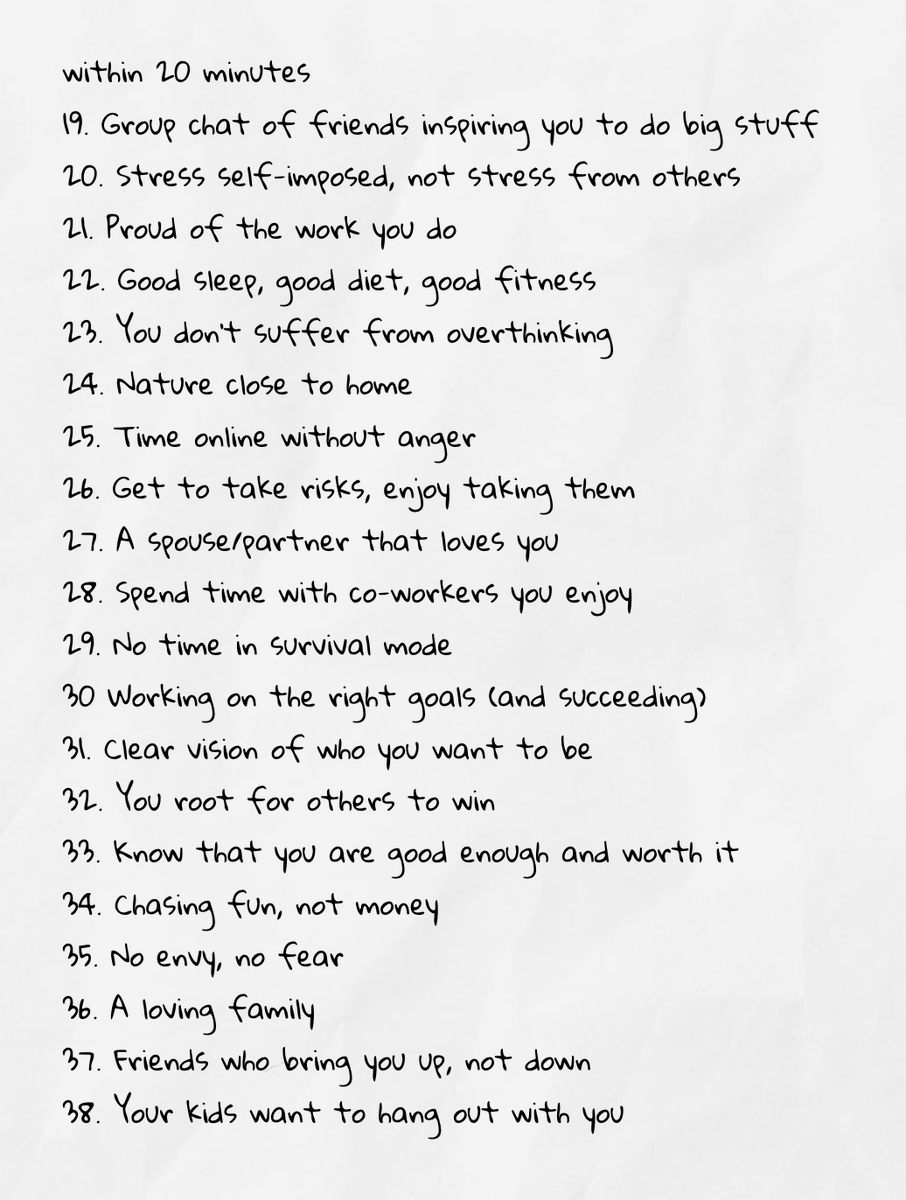 within 20 minutes
19. Group chat of friends inspiring you to do big stuff
20. Stress self-imposed, not stress from others
21. Proud of the work you do
22. Good sleep, good diet, good fitness
23. You don't suffer from overthinking
24. Nature close to home
25. Time online without anger
26. Get to take risks, enjoy taking them
27. A spouse/partner that loves you
28. Spend time with co-workers you enjoy
29. No time in survival mode
30 Working on the right goals (and succeeding)
31. Clear vision of who you want to be
32. You root for others to win
33. Know that you are good enough and worth it
34. Chasing fun, not money
35. No envy, no fear
36. A loving family
37. Friends who bring you up, not down
38. Your kids want to hang out with you